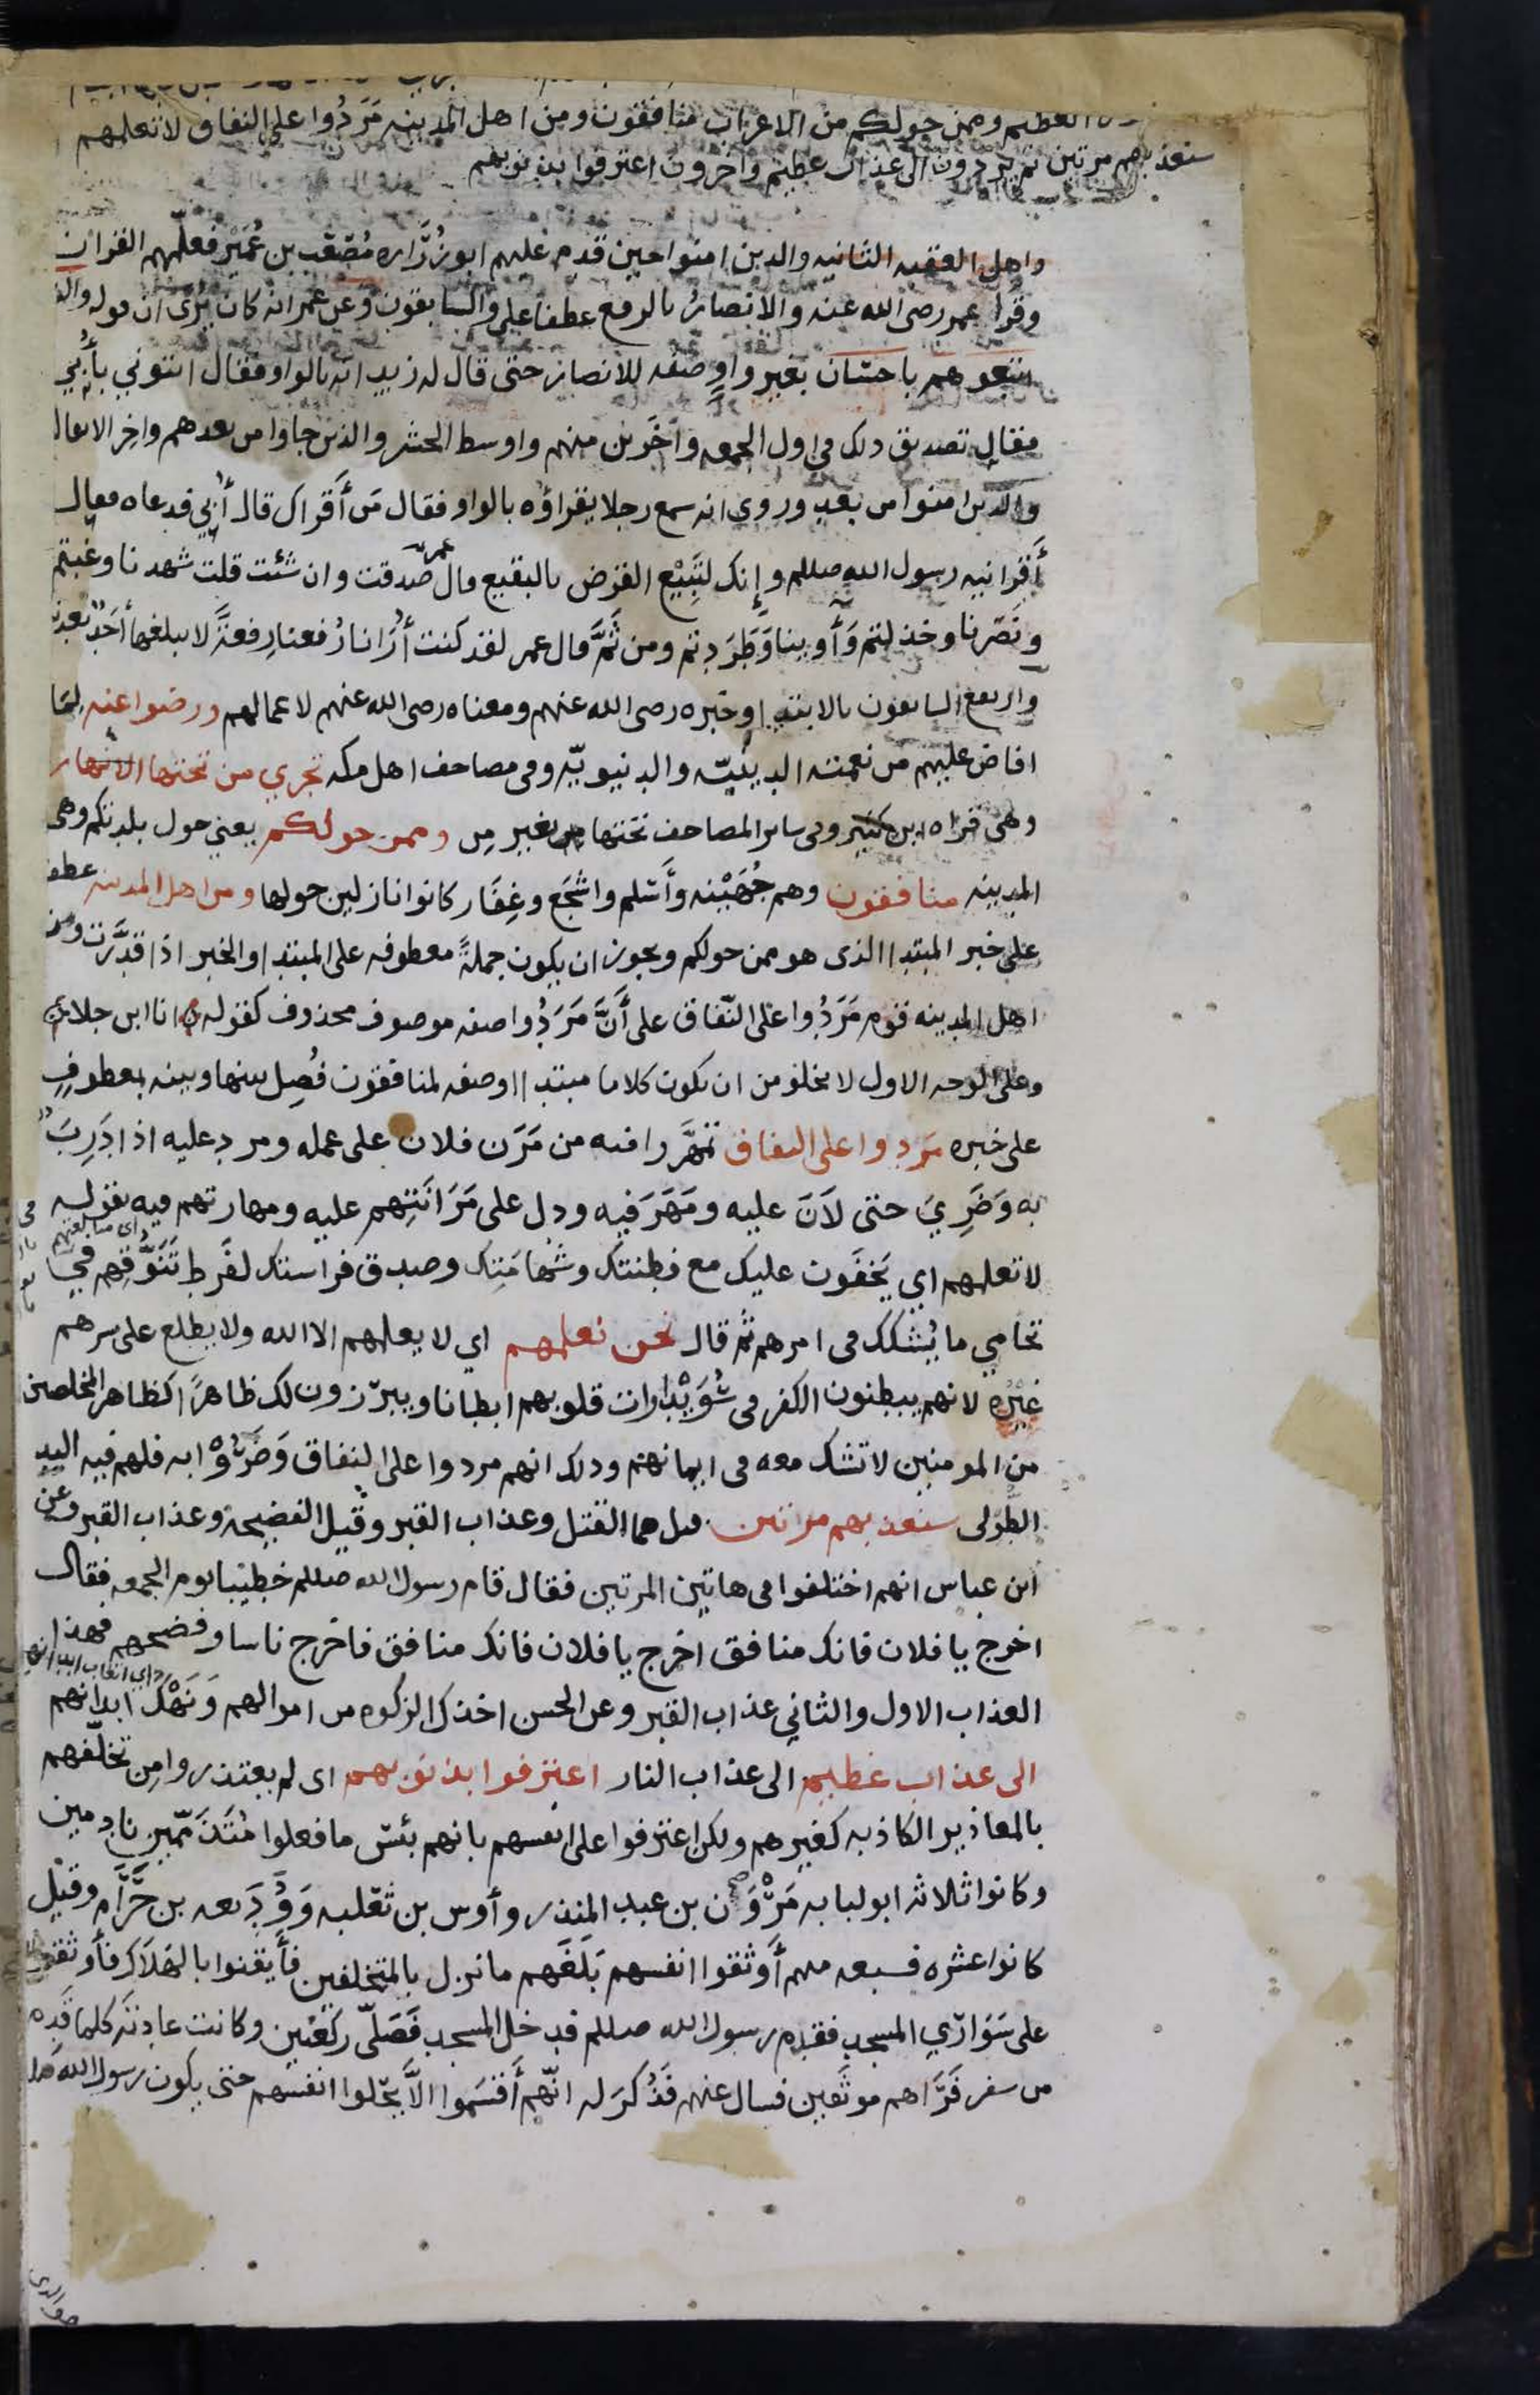 العظيم وممن حولكم من الاعراب منافقون ومن اهل المدينه مَرَدُوا على النفاق لا تعلمهم
سنعذبهم مرتين ثم يردون الى عذاب عظيم واخرون اعترفوا بذنوبهم
واهل العقبه الثانيه والذين امنوا حين قدم عليهم ابو زُرَاره مُصْعَب بن عُمَيْر فعلّمهم القران
وقرا عمر رضى الله عنه والانصارُ بالرفع عطفا على والسابقون وعن عمر انه كان يرى ان قوله والذ
اتبعوهم باحسان بغير واو صفه للانصار حتى قال له زيد انه بالواو فقال ائتوني بأُبَيّ
فقال تصديق ذلك في اول الجمعه وآخَرين منهم واوسط الحشر والذين جاوا من بعدهم واخِر الانفال
والذين امنوا من بعد وروى انه سمع رجلا يقراؤه بالواو فقال مَن أَقراك قال أُبي فدعاه فقال
أَقرانيه رسول الله صللم وإنك لتَبِيْع القرَض بالبقيع قال عمر صدقت وان شئت قلت شهدنا وغبتم
ونَصَرنا وخذلتم وَأوينا وَطَرَدتم ومن ثَمَّ قال عمر لقد كنت أُرَانا رُفعنا رِفعةً لا يبلغها أحَدٌ بعدنا
وارتفع السابقون بالابتدا وخبره رضى الله عنهم ومعناه رضى الله عنهم لاعمالهم ورضوا عنه لِمَا
افاض عليهم من نعمته الدينيّه والدنيويّه وفى مصاحف اهل مكه تجري من تحتها الانهار
وهى قراه ابن كثير وفى ساير المصاحف تحتها بغير مِن وممن حولكم يعني حول بلدتكم وهى
المدينه منافقون وهم جُهَيْنه وأَسْلم واشْجَع وغِفَار كانوا نازلين حولها ومن اهل المدينه عطف
على خبر المبتدا الذى هو ممن حولكم ويجوز ان يكون جملةً معطوفه على المبتدا والخبر اذا قدَّرت ومن
اهل المدينه قوم مَرَدُوا على النّفاق على أَنَّ مَرَدُوا صفه موصوف محذوف كقوله انا ابن جلا
وعلى الوجه الاول لا يخلو من ان يكون كلاما مبتدا او صفه لمنافقون فُصِل بينها وبينه بمعطوفٍ
على خبره مَرَدوا على النفاق تمَهَّروا فيه من مَرَن فلان على عمله ومرد عليه اذا دَرِبَ
به وَضَرِيَ حتى لاَنَ عليه ومَهَرَ فيه ودل على مَرَانَتِهم عليه ومهارتهم فيه بقوله
لا تعلمهم اي يَخفَون عليك مع فطنتك وشَهَامَتِك وصدق فراستك لفَرط تَنَوُّقِهم في
اى مبالغتهم
تحامي ما يُشكك فى امرهم ثم قال نحن نعلمهم اي لا يعلمهم الا الله ولا يطلع على سرهم
غيْرُه لانهم يبطنون الكفر فى سُوَيْدَاوات قلوبهم ابطانا ويبرّزون لك ظاهرًا كظاهر المخلصين
من المومنين لا تشك معه فى ايمانهم وذلك انهم مردوا على النفاق وَضَرُوْا به فلهم فيه اليد
الطُولى سنعذبهم مرتين قيل هما القتل وعذاب القبر وقيل الفضيحة وعذاب القبر وعن
ابن عباس انهم اختلفوا فى هاتين المرتين فقال قام رسول الله صللم خطيبا يوم الجمعه فقال
اخرج يا فلان فانك منافق اخرج يا فلان فانك منافق فاخرج ناسا وفضحهم فهذا
العذاب الاول والثاني عذاب القبر وعن الحسن اخذ الزكوه من اموالهم وَنَهْك ابدانهم
اى اتعاب ابدانهم
الى عذاب عظيم الى عذاب النار اعترفوا بذنوبهم اى لم يعتذروا مِن تخلّفهم
بالمعاذير الكاذبه كغيرهم ولكن اعترفوا على انفسهم بانهم بئس ما فعلوا مُتَذَمّمِين نادمين
وكانوا ثلاثه ابو لبابه مَرْوَان بن عبد المنذر وأوس بن ثَعلبه وَوَدِيعه بن حَرَّام وقيْل
كانوا عشره فسبعه منهم أَوثقوا انفسهم بَلَغَهم ما نزل بالمتخلفين فأَيقنوا بالهَلاَك فأوثقوا
على سَوَارِي المسجد فقدِم رسول الله صللم فدخل المسجد فَصَلَّى ركعتين وكانت عادته كلما قَدِم
من سفر فَرَاهم موثَقين فسال عنهم فَذُكرَ له انّهم أَقسَموا الاَّ يحُلوا انفسهم حتى يكون رسول الله صلـ